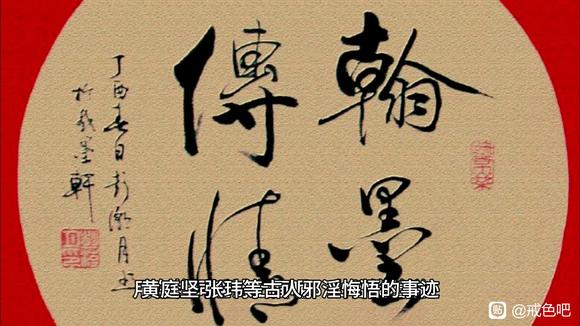 翰墨
傳情
丁酉春日
墨軒
黄庭坚张玮等古人邪淫悔悟的事迹
贴 @戒色吧